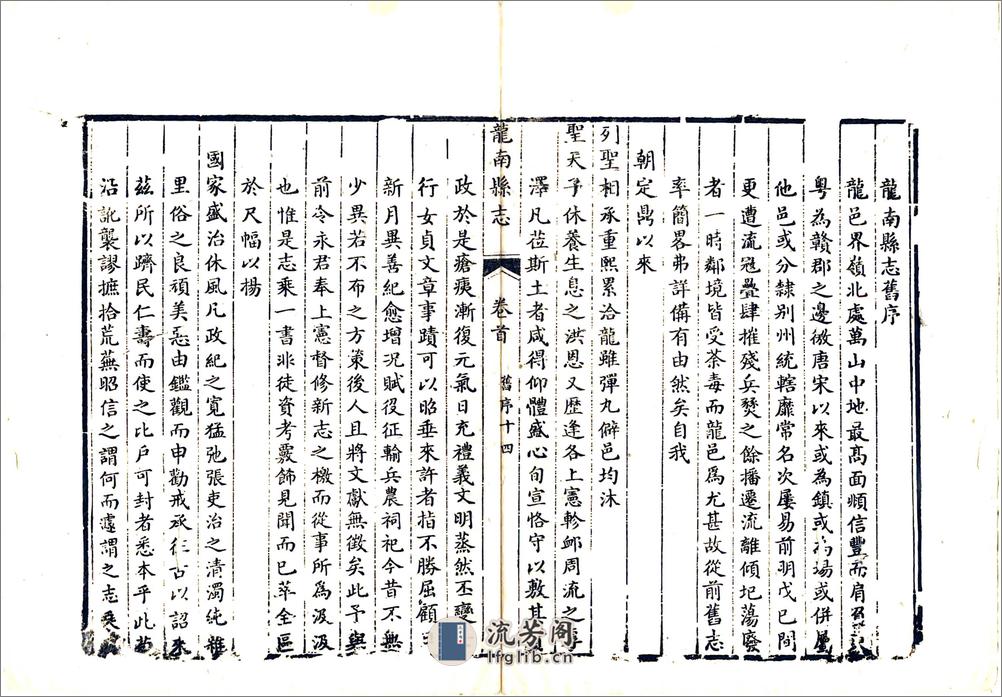 龍南縣志舊序
龍邑界嶺北處萬山中地最高面順信豐而肩
粵為贛郡之邊徼唐宋以來或為鎮或為場或併屬
他邑或分隸別州統轄靡常名次屢易前明戊巳間
更遭流寇疊肆摧殘兵燹之餘播遷流離傾圮蕩廢
者一時鄰境皆受荼毒而龍邑為尤甚故從前舊志
率簡畧弗詳備有由然矣自我
朝定鼎以來
列聖相承重熙累洽龍雖彈丸僻邑均沐
聖天子休養生息之洪恩又歷逢各上憲軫卹周流之
澤凡莅斯土者咸得仰體盛心旬宣恪守以敷其
龍南縣志
卷首
舊序十四
政於是瘡痍漸復元氣日充禮義文明蒸然丕變
行女貞文章事蹟可以昭垂來許者指不勝屈顧
新月異善紀愈增况賦役征輸兵農祠祀今昔不無
少異若不布之方策後人且將文獻無徵矣此予與
前令永君奉上憲督修新志之檄而從事所為汲汲
也惟是志乘一書非徒資考覈飾見聞而已萃全區
於尺幅以揚
國家盛治休風凡政紀之寬猛弛張吏治之清濁純雜
里俗之良頑美惡由鑑觀而申勸戒承往古以詔來
茲所以躋民仁壽而使之比戶可封者悉本乎此苟
沿訛襲謬摭拾荒蕪昭信之謂何而遽謂之志乘
流芳閣
lfglib.cn